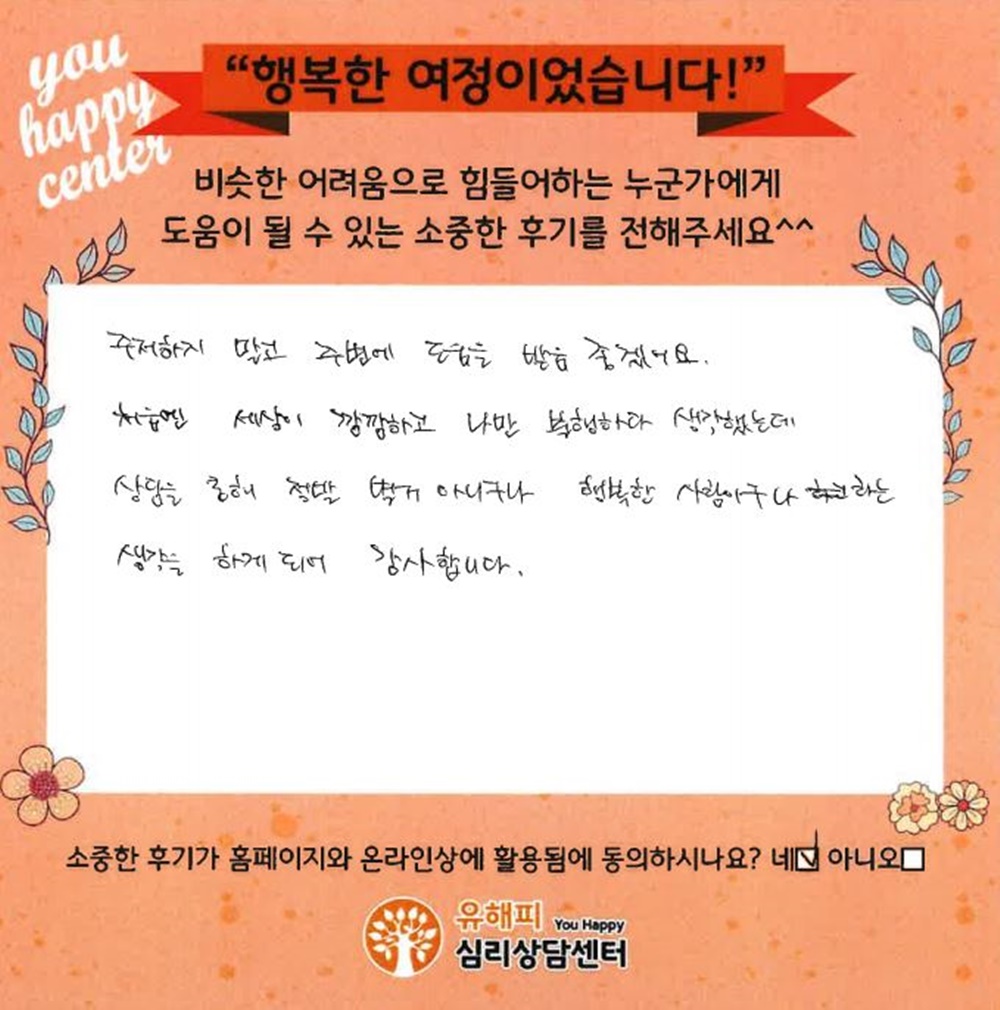 you
happy
center
“행복한 여정이었습니다!”
비슷한 어려움으로 힘들어하는 누군가에게
도움이 될 수 있는 소중한 후기를 전해주세요^^
주저하지 말고 주변에 도움을 받음 좋겠어요.
처음엔 세상이 깜깜하고 나만 불행하다 생각했는데
상담을 통해 절망 아니구나 행복한 사람이구나 하는
생각을 하게 되어 감사합니다.
소중한 후기가 홈페이지와 온라인상에 활용됨에 동의하시나요? 네 아니오
유해피 You Happy
심리상담센터